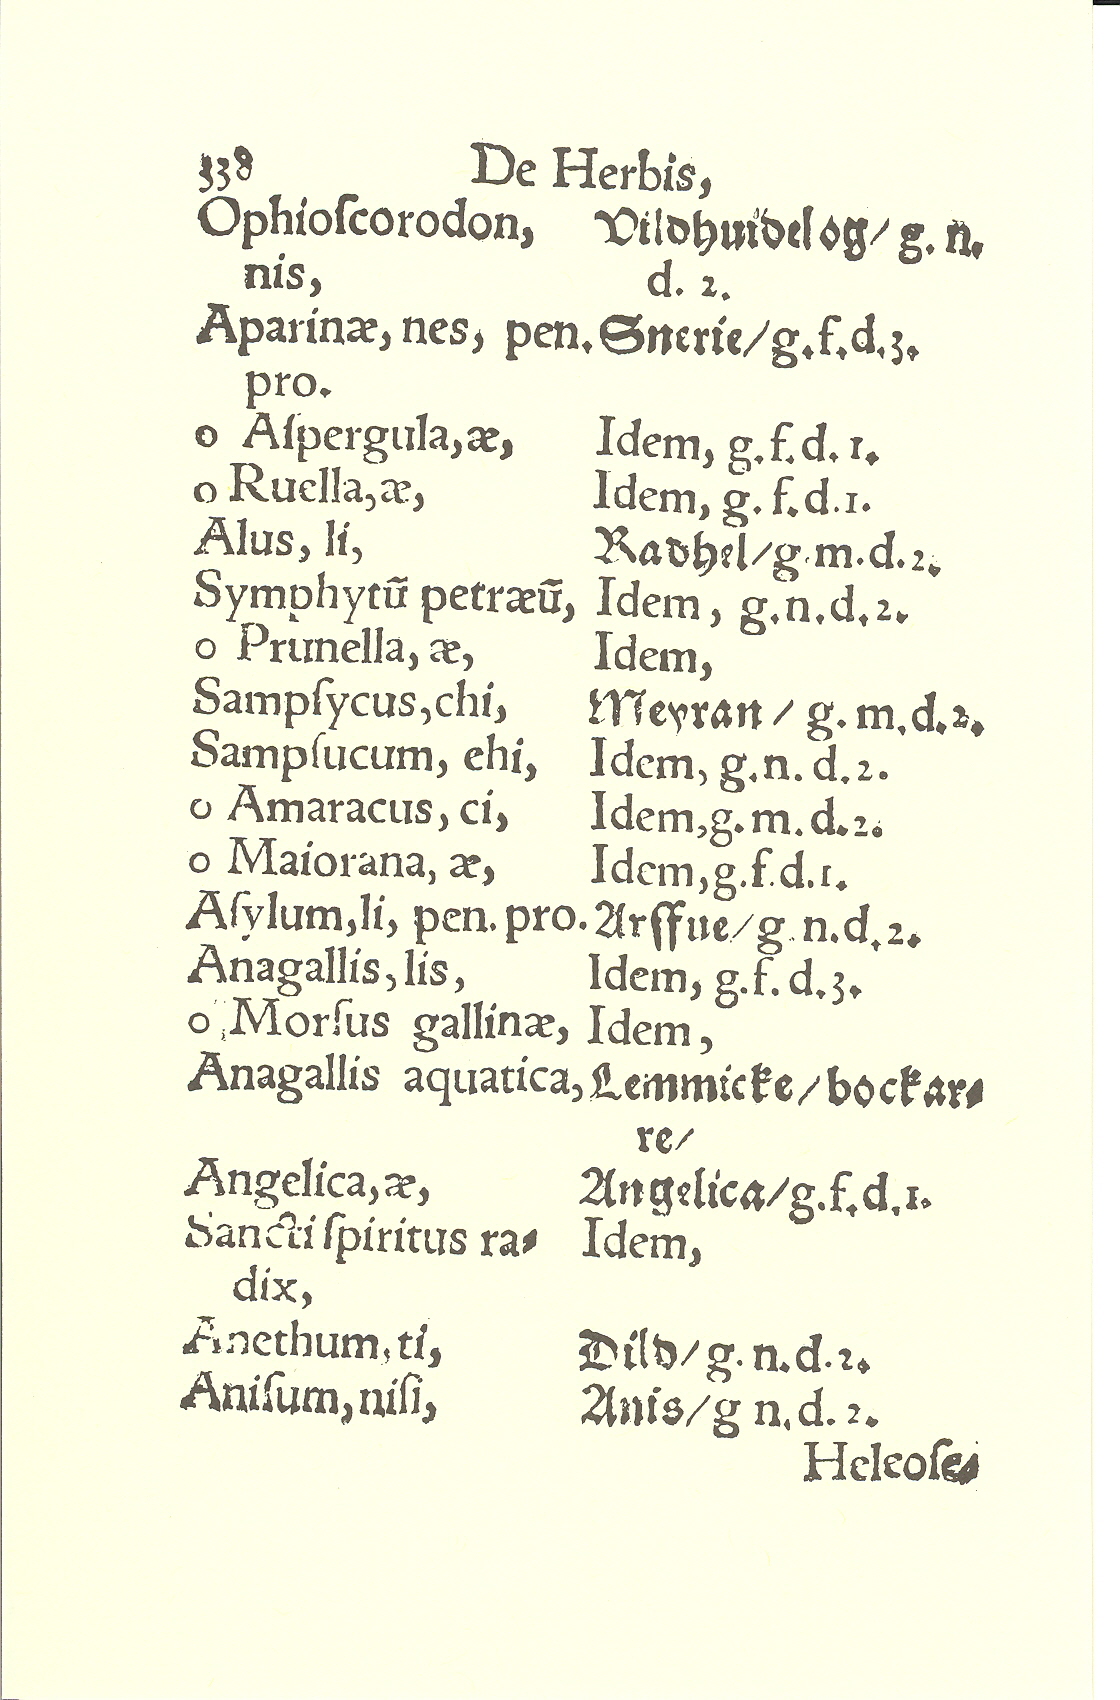 338 De Herbis,
Ophioſcorodon, Vildhuidelog/ g. n.
nis, d. 2.
Aparinæ, nes, pen. Snerie/g.f.d.3.
pro.
o Aſpergula,æ, Idem, g.f.d.1.
o Ruella,æ, Idem, g.f.d.1.
Alus, li, Radhel/g.m.d.2.
Symphytũ petræũ, Idem, g.n.d.2.
o Prunella, æ, Idem,
Sampſycus,chi, Meyran/ g.m.d.2.
Sampſucum, ehi, Idem, g.n.d.2.
o Amaracus, ci, Idem,g.m.d.2.
o Maiorana, æ, Idem,g.f.d.1.
Aſylum,li, pen. pro. Arffue/g.n.d.2.
Anagallis,lis, Idem, g.f.d.3.
o Morſus gallinæ, Idem,
Anagallis aquatica, Lemmicke/bockar⸗
re/
Angelica,æ, Angelica/g.f.d.1.
Sancti ſpiritus ra⸗ Idem,
dix,
Anethum,ti, Dild/g.n.d.2.
Aniſum,niſi, Anis/g n.d.2.
Heleoſe⸗